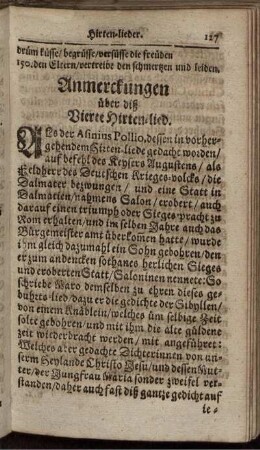 Hirten-lieder. 127
drüm küsse/ begrüsse/ versüsse die freüden
150. den Eltern/ vertreibt den schmertzen und leiden.
Anmerckungen
über diß
Vierte Hirten-lied.
ALs der Asinius Pollio, dessen in vorher-
gehendem Hirten-liede gedacht worden/
auf befehl des Keysers Augustens/ als
Feldherr des Deutschen Krieges-volcks/ die
Dalmater bezwungen/ und eine Statt in
Dalmatien/ nahmens Salon/ erobert/ auch
darauf einen triumph oder Sieges-pracht zu
Rom erhalten/ und im selben Jahre auch das
Bürgemeister amt überkomen hatte/ wurde
ihm gleich dazumahl ein Sohn gebohren/ den
er zum andencken sothanes herlichen Sieges
und eroberten Statt/ Saloninen nennete: So
schriebe Maro demselben zu ehren dieses ge-
buhrts-lied/ dazu er die gedichte der Sibyllen/
von einem Knäblein/ welches üm selbige Zeit
solte gebohren/ und mit ihm die alte güldene
Zeit wiederbracht werden/ mit angeführet:
Welches aber gedachte Dichterinnen von un-
serm Heylande Christo Jesu/ und dessen Mut-
ter/ der Jungfrau Maria sonder zweifel ver-
standen/ daher auch fast diß gantze gedicht auf